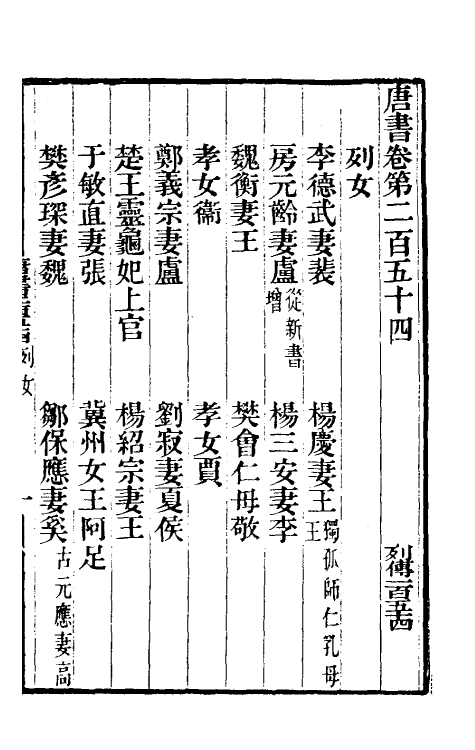 唐書卷第二百五十四
列傳一百五十四
列女
李德武妻裴
楊慶妻王
獨孤師仁乳母王
房元齡妻盧從新書增
楊三安妻李
魏衡妻王
樊會仁母敬
孝女衞
孝女賈
鄭義宗妻盧
劉寂妻夏侯
楚王靈龜妃上官
楊紹宗妻王
于敏直妻張
冀州女王阿足
樊彥琛妻魏
鄒保應妻奚
古元應妻高
列女
一